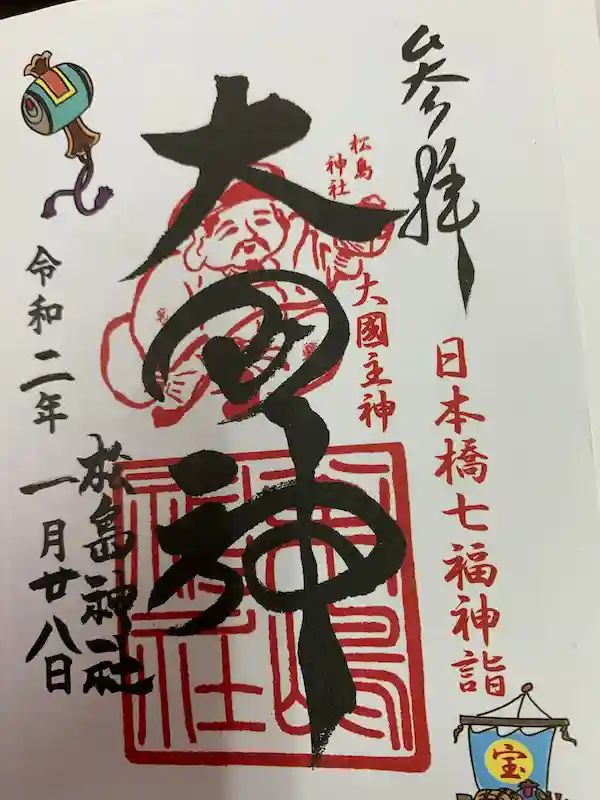 參拜
日本橋七福神詣
松島
神社
大國主神
大国神
松島神社
令和二年
一月廿八日
松嶋
神社
宝